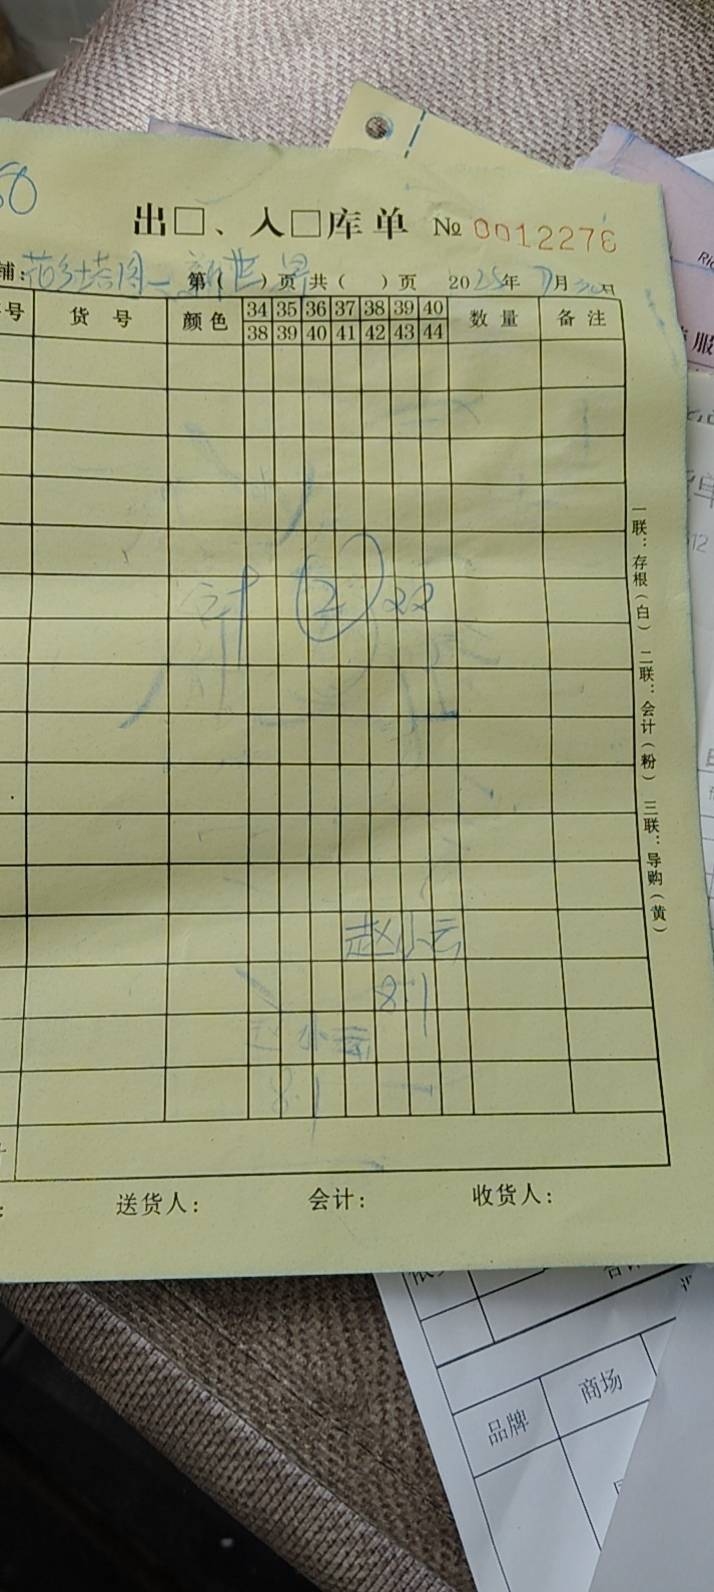 50
出□、入□库单 № 0012276
铺: 莎塔图—新世界 第( )页 共( )页 2025年7月30日
号 货号 颜色 34 35 36 37 38 39 40 数量 备注
38 39 40 41 42 43 44
计 ② 双
赵小云
8.1
赵小云
8.1
计
送货人: 会计: 收货人:
一联:存根(白) 二联:会计(粉) 三联:导购(黄)
服
12
品牌 商场